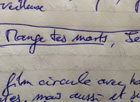 veilleuse
Mange tes morts, Le
film circule avec
tes, mais aussi et